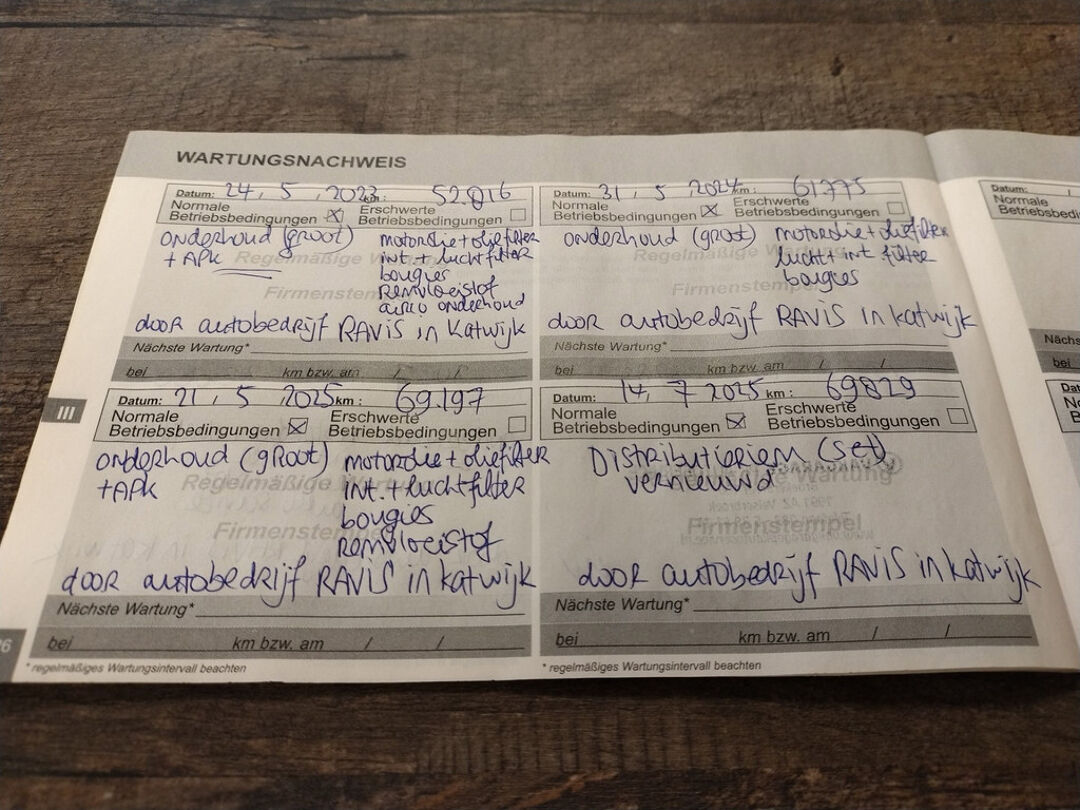 WARTUNGSNACHWEIS
Datum: 24, 5, 2023 km: 52.816
Normale Betriebsbedingungen ☒ Erschwerte Betriebsbedingungen ☐
onderhoud (groot)
+ APK
motorolie + oliefilter
int. + luchtfilter
bougies
Remvloeistof
airco onderhoud
Regelmäßige
Firmenstempel
door autobedrijf RAVIS in Katwijk
Nächste Wartung*
bei km bzw. am / /
Datum: 31, 5, 2024 km: 61775
Normale Betriebsbedingungen ☒ Erschwerte Betriebsbedingungen ☐
onderhoud (groot)
motorolie + oliefilter
lucht + int filter
bougies
Regelmäßige Wartung
Firmenstempel
door autobedrijf RAVIS in Katwijk
Nächste Wartung*
bei km bzw. am / /
III
Datum: 21, 5, 2025 km: 69.197
Normale Betriebsbedingungen ☒ Erschwerte Betriebsbedingungen ☐
onderhoud (gRoot)
+ APK
motorolie + oliefilter
int. + luchtfilter
bougies
Remvloeistof
Regelmäßige
Firmenstempel
door autobedrijf RAVIS in Katwijk
Nächste Wartung*
bei km bzw. am / /
* regelmäßiges Wartungsintervall beachten
Datum: 14, 7 2025 km: 69829
Normale Betriebsbedingungen ☒ Erschwerte Betriebsbedingungen ☐
Distributieriem (set)
vernieuwd
Wartung
Firmenstempel
door autobedrijf RAVIS in Katwijk
Nächste Wartung*
bei km bzw. am / /
* regelmäßiges Wartungsintervall beachten
Datum:
Normale
Betriebsbedi
bei